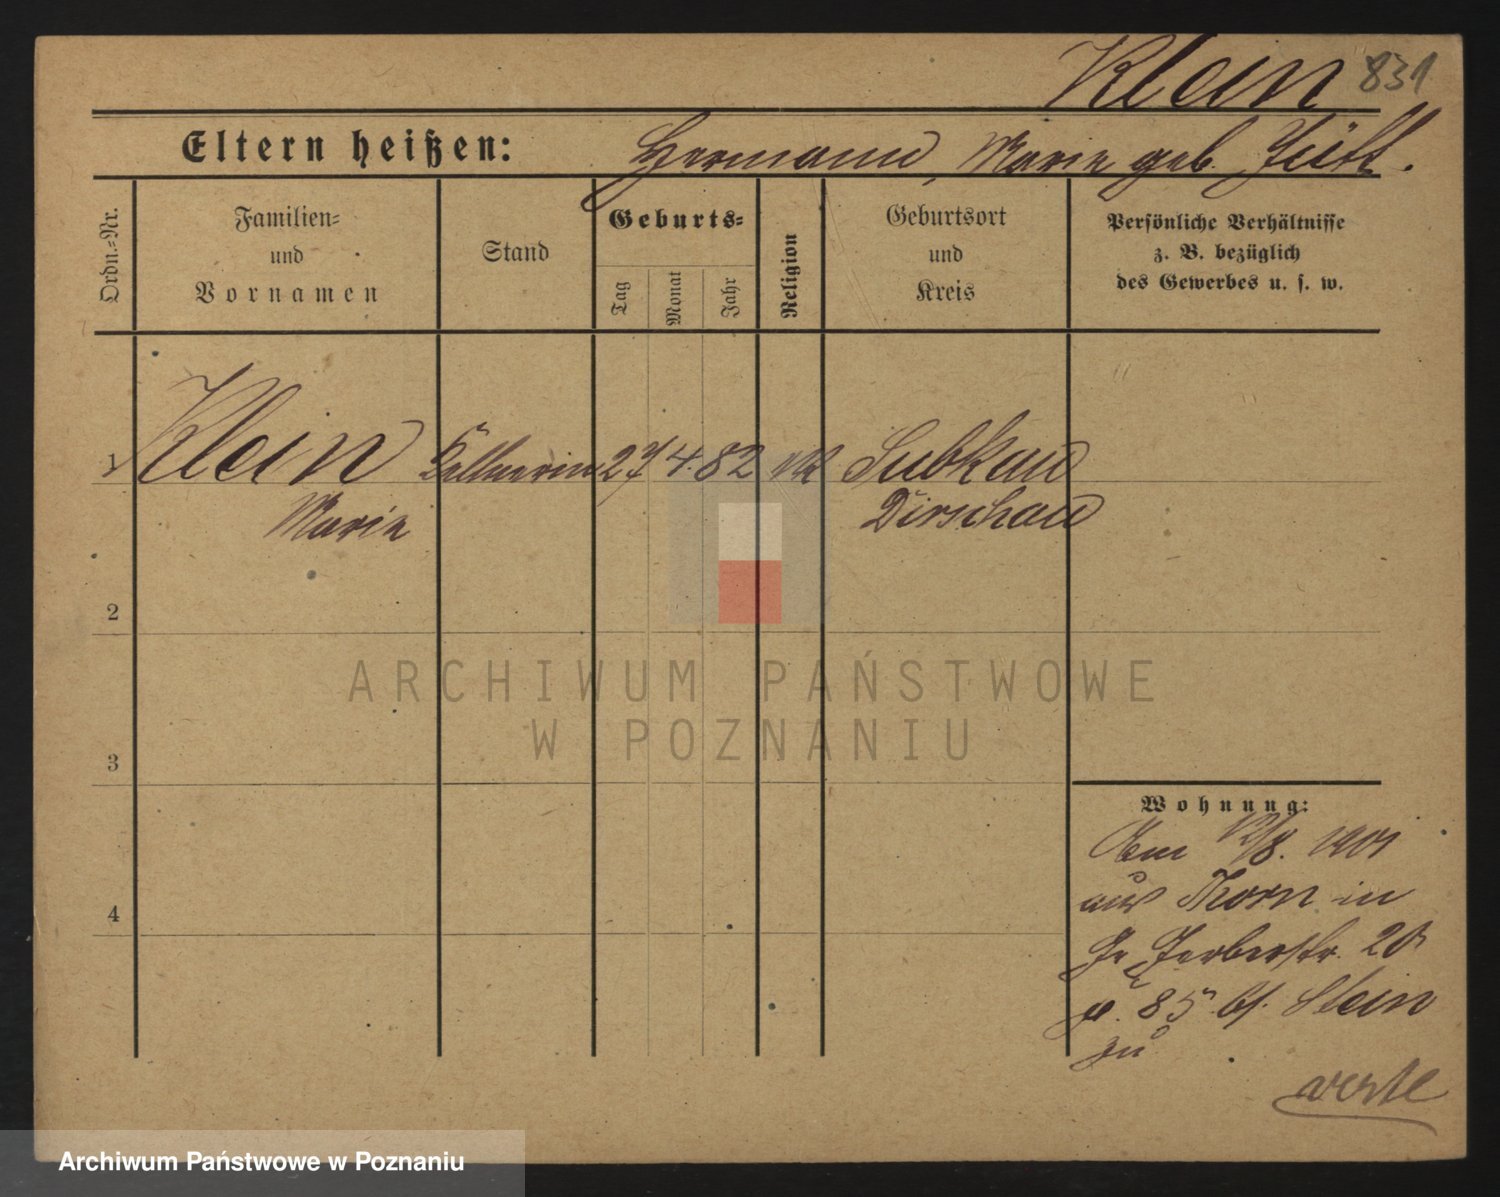 Klein 831
Eltern heißen: Hermann, Marie geb.
Ordn.=Nr.
Familien=
und
Vornamen
Stand
Geburts=
Tag
Monat
Jahr
Religion
Geburtsort
und
Kreis
Persönliche Verhältnisse
z. B. bezüglich
des Gewerbes u. s. w.
1 Klein Kellnerin 27 4. 82 Subkau
Marie Dirschau
2
3
4
Wohnung:
12/8. 1901
aus Thorn in
Gr Gerberstr. 20
85 bf. Stein
zu
ARCHIWUM PAŃSTWOWE
W POZNANIU
Archiwum Państwowe w Poznaniu